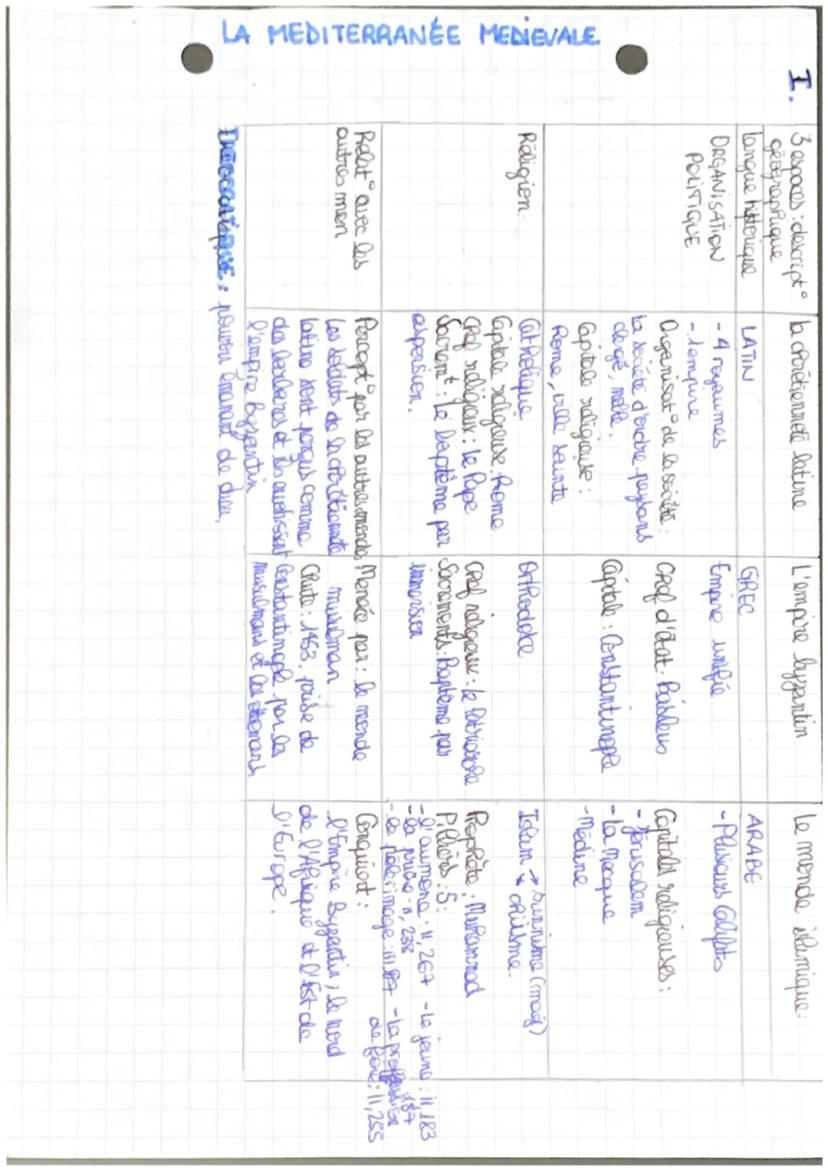 LA MEDITERRANÉE MEDIEVALE
I.
3 espaces : descript°
géographique
la chrétienneté latine
L'empire byzantin
Le monde islamique:
langue historique
LATIN
GREC
ARABE
ORGANISATION
POLITIQUE
- 4 royaumes
- 1 empire
Organisat° de la société:
la société d'ordre paysans
clergé, noble.
Capitale religieuse :
Rome, ville sainte
Empire unifié
Chef d'état : Basileus
Capitale : Constantinople
- Plusieurs Califats
Capitales religieuses :
- Jerusalem
- La Mecque
- Médine
Religion
Catholique
Capitale religieuse : Rome
Chef religieux : Le Pape
Sacrement : Le baptême par
aspersion.
Orthodoxe
Chef religieux : le Patriarche
Sacrements : Baptême par
immersion
Islam → sunnisme (maj)
↘ chiisme.
Prophète : Muhammad
Piliers : 5 :
- l'aumône : II, 267 - Le jeûne : II, 183
- la prière : II, 238 187
- le pèlerimage : III, 97 - La profession
de foie : II, 255
Relat° avec les
autres
Percept° par les autres mondes
Les soldats de la chrétienneté
latine sont perçus comme
des barbares et ils
l'empire Byzantin
Menacée par : le monde
musulman
Chute : 1453, prise de
Constantinople par les
musulmans et les ottomans
Conquiert :
l'Empire Byzantin, le nord
de l'Afrique et l'Est de
l'Europe.
THÉOCRATIQUE : pouvoir émanant de dieu,